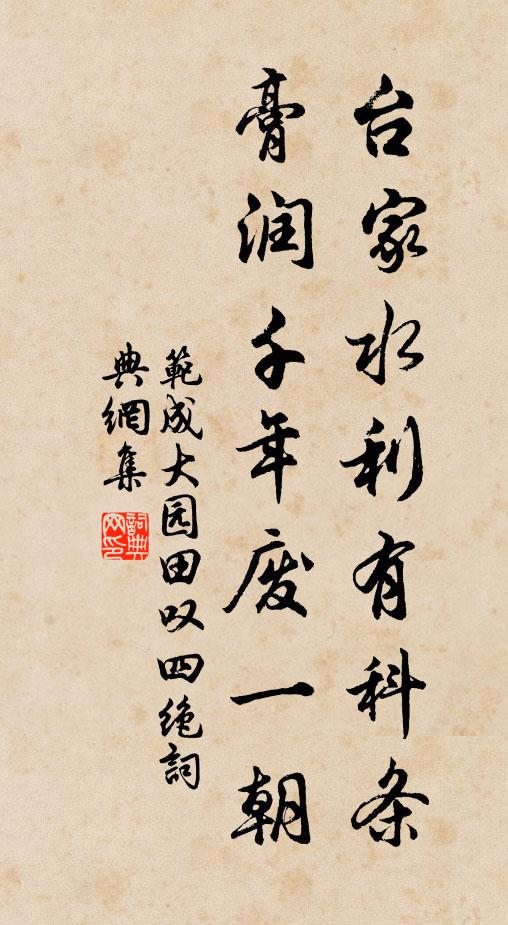 台家水利有科条
膏润千年废一朝
範成大园田叹四绝詞
典網集
詞典網印